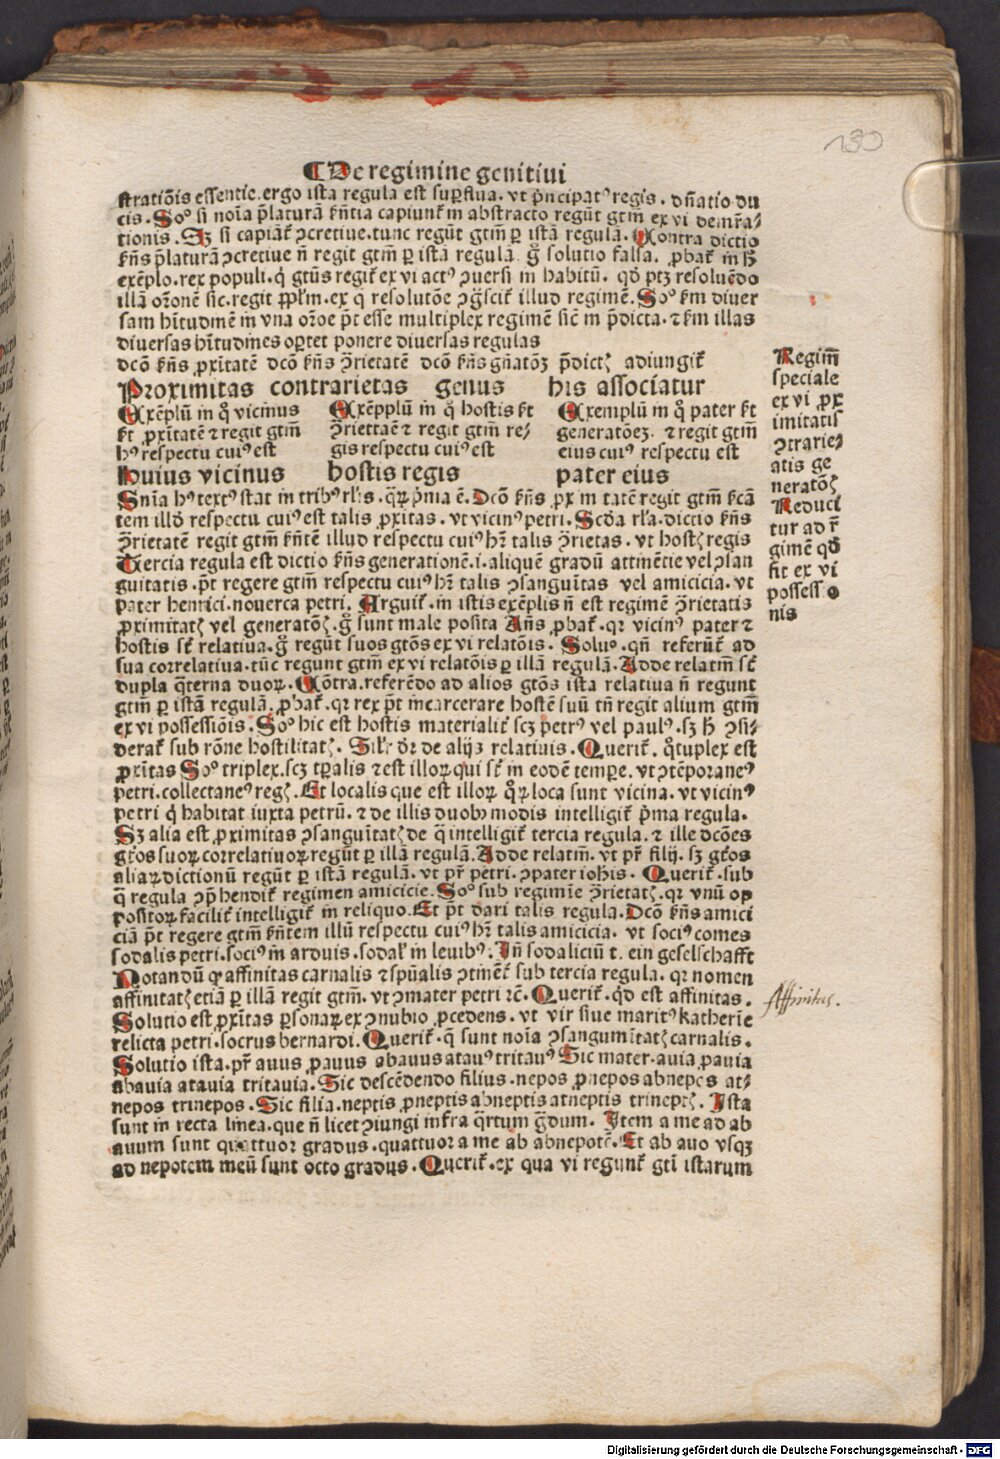 130
¶ De regimine genitiui
stratiōis essentie. ergo ista regula est suꝑflua. vt p̄ncipatꝰ regis. dn̄atio du
cis. Soꝰ si noīa p̄laturā ſn̄tia capiunt᷑ in abstracto regūt gtm̄ ex vi demr̄a⸗
tionis. Sꝫ si capiāt᷑ ꝯcretiue. tunc regūt gtm̄ ꝑ istā regulā. Contra dictio
ſn̄s p̄laturā ꝯcretiue n̄ regit gtm̄ ꝑ istā regulā. gͦ solutio falsa. ꝓbat᷑ in hͦ
exēplo. rex populi. q̇ gtūs regit᷑ ex vi actꝰ ꝯuersi in habitū. qđ ptꝫ resoluēdo
illā oꝛonē sic. regit ppl̄m. ex q̇ resolutōe ꝯgͦscit᷑ illud regimē. Soꝰ ſm diuer
sam hītudinē in vna oꝛōe pt̄ esse multiplex regimē sic̄ in p̄dicta. ⁊ ſm illas
diuersas hītudines oꝑtet ponere diuersas regulas
dcō ſn̄s ꝓxītatē dcō ſn̄s ꝯrietatē dcō ſn̄s gn̄atōꝫ p̄dictꝭ adiungit᷑
Proximitas contrarietas genus his associatur
Exēplū in q̊ vicinus
ſt ꝓxītatē ⁊ regit gtm̄
hꝰ respectu cuiꝰ est
Huius vicinus
Exēpplū in q̊ hostis ſt
ꝯriettaē ⁊ regit gtm̄ re⸗
gis respectu cuiꝰ est
hostis regis
Exemplū in q̊ pater ſt
generatōeꝫ. ⁊ regit gtm̄
eius cuiꝰ respectu est
pater eius
Regim̄
speciale
ex vi ꝓx
imitatis
ꝯtrarie⸗
atis ge
neratōꝭ
Reduci
tur ad r̄
gimē qđ
fit ex vi
possesso
nis
Sn̄ia hꝰ textꝰ stat in tribꝰ rl̄is. qꝝ p̄ma ē. Dcō ſn̄s ꝓx im tatē regit gtm̄ ſcā
tem illđ respectu cuiꝰ est talis ꝓxitas. vt vicinꝰ petri. Scđa rl̄a. dictio ſn̄s
ꝯrietatē regit gtm̄ ſn̄tē illud respectu cuiꝰ hꝫ talis ꝯrietas. vt hostꝭ regis
Tercia regula est dictio ſn̄s generationē. i. aliquē gradū attinētie vel ꝯsan
guitatis. pt̄ regere gtm̄ respectu cuiꝰ hꝫ talis ꝯsanguītas vel amicicia. vt
pater henrici. nouerca petri. Arguit᷑. in istis exēplis n̄ est regimē ꝯrietatis
ꝓximitatꝭ vel generatōꝭ. gͦ sunt male posita Ans̄ ꝓbat᷑. qꝛ vicinꝰ pater ⁊
hostis st̄ relatiua. gͦ regūt suos gtōs ex vi relatōis. Soluꝰ. qn̄ referūt᷑ ad
sua correlatiua. tūc regunt gtm̄ ex vi relatōis ꝑ illā regulā. Adde relatm̄ st̄
dupla q̄terna duoꝝ. Cōtra. referēdo ad alios gtōs ista relatiua n̄ regunt
gtm̄ ꝑ istā regulā. ꝓbat᷑. qꝛ rex pt̄ incarcerare hostē suū tn̄ regit alium gtm̄
ex vi possessiōis. Soꝰ hic est hostis materialit᷑ scꝫ petrꝰ vel paulꝰ. sꝫ hͦ ꝯsi⸗
derat᷑ sub rōne hostilitatꝭ. Silr̄ dꝛ de alijꝫ relatiuis. Querit᷑. q̊tuplex est
ꝓxītas Soꝰ triplex. scꝫ tꝑalis ⁊ est illoꝝ qui st̄ in eodē tempe. vt ꝯtēporaneꝰ
petri. collectaneꝰ regꝭ. Et localis que est illoꝝ q̊ꝝ loca sunt vicina. vt vicinꝰ
petri q̇ habitat iuxta petrū. ⁊ de illis duobꝫ modis intelligit᷑ p̄ma regula.
Sꝫ alia est ꝓximitas ꝯsanguītatꝭ de q̄ intelligit᷑ tercia regula. ⁊ ille dcōes
gtōs suoꝝ correlatiuoꝝ regūt ꝑ illā regulā. Adde relatm̄. vt pr̄ filij. sꝫ gtōs
aliaꝝ dictionū regūt ꝑ istā regulā. vt pr̄ petri. ꝯpater iohīs. Querit᷑. sub
q̄ regula ꝯp̄hendit᷑ regimen amicicie. Soꝰ sub regimīe ꝯrietatꝭ. qꝛ vnū op
positoꝝ facilit᷑ intelligit᷑ in reliquo. Et pt̄ dari talis regula. Dcō ſn̄s amici
ciā pt̄ regere gtm̄ ſn̄tem illū respectu cuiꝰ hꝫ talis amicicia. vt sociꝰ comes
sodalis petri. sociꝰ in arduis. sodal᷑ in leuibꝰ. In̄ sodaliciū t. ein geselschafft
Notandū ꝙ affinitas carnalis ⁊ spūalis ꝯtinēt᷑ sub tercia regula. qꝛ nomen
affinitatꝭ etiā ꝑ illā regit gtm̄. vt ꝯmater petri ⁊c̄. Querit᷑. qđ est affinitas.
Affinitas.
Solutio est ꝓxītas ꝑsonaꝝ ex ꝯnubio ꝓcedens. vt vir siue maritꝰ katherīe
relicta petri. socrus bernardi. Querit᷑. q̄ sunt noīa ꝯsanguinītatꝭ carnalis.
Solutio ista. pr̄ auus ꝓauus abauus atauꝰ tritauꝰ Sic mater. auia ꝓauia
abauia atauia tritauia. Sic descēdendo filius. nepos ꝓnepos abnepos at⸗
nepos trinepos. Sic filia. neptis ꝓneptis abneptis atneptis trineptꝭ. Ista
sunt in recta linea. que n̄ licet ꝯiungi infra q̄rtum g̊dum. Item a me ad ab
auum sunt quattuor gradus. quattuor a me ab abnepotē. Et ab auo vsqꝫ
ad nepotem meū sunt octo gradus. Querit᷑. ex qua vi regunt᷑ gtī istarum
Digitalisierung gefördert durch die Deutsche Forschungsgemeinschaft - DFG